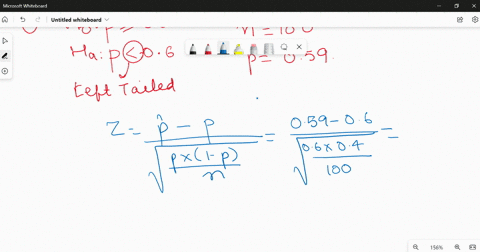 Microsoft Whiteboard
Untitled whiteboard
n = 100
Ha: p < 0.6
p̂ = 0.59
Left Tailed
Z = (p̂ - p) / √(p×(1-p)/n) = (0.59 - 0.6) / √(0.6 × 0.4/100) =
156%